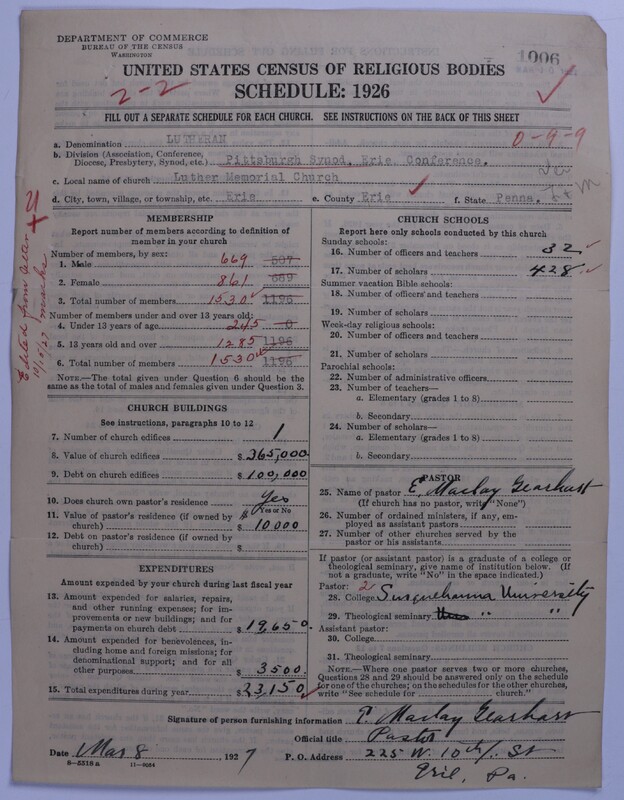 DEPARTMENT OF COMMERCE
BUREAU OF THE CENSUS
WASHINGTON
1006
UNITED STATES CENSUS OF RELIGIOUS BODIES
2-2
SCHEDULE: 1926
FILL OUT A SEPARATE SCHEDULE FOR EACH CHURCH. SEE INSTRUCTIONS ON THE BACK OF THIS SHEET
a. Denomination LUTHERAN 0-9-9
b. Division (Association, Conference, Diocese, Presbytery, Synod, etc.) Pittsburgh Synod, Erie Conference.
c. Local name of church Luther Memorial Church
d. City, town, village, or township, etc. Erie e. County Erie f. State Penna.
MEMBERSHIP
Report number of members according to definition of
member in your church
Number of members, by sex:
1. Male 669 507
2. Female 861 689
3. Total number of members 1530 1196
Number of members under and over 13 years old:
4. Under 13 years of age 245 0
5. 13 years old and over 1285 1196
6. Total number of members 1530 1196
NOTE.—The total given under Question 6 should be the
same as the total of males and females given under Question 3.
Edited from letter
10/5/27
CHURCH BUILDINGS
See instructions, paragraphs 10 to 12
7. Number of church edifices 1
8. Value of church edifices $ 365,000
9. Debt on church edifices $ 100,000
10. Does church own pastor's residence Yes
Yes or No
11. Value of pastor's residence (if owned by
church) $ 10000
12. Debt on pastor's residence (if owned by
church) $
EXPENDITURES
Amount expended by your church during last fiscal year
13. Amount expended for salaries, repairs,
and other running expenses; for im-
provements or new buildings; and for
payments on church debt $ 19,650.
14. Amount expended for benevolences, in-
cluding home and foreign missions; for
denominational support; and for all
other purposes $ 3500.
15. Total expenditures during year $ 23,150
CHURCH SCHOOLS
Report here only schools conducted by this church
Sunday schools:
16. Number of officers and teachers 32
17. Number of scholars 428
Summer vacation Bible schools:
18. Number of officers and teachers
19. Number of scholars
Week-day religious schools:
20. Number of officers and teachers
21. Number of scholars
Parochial schools:
22. Number of administrative officers
23. Number of teachers—
a. Elementary (grades 1 to 8)
b. Secondary
24. Number of scholars—
a. Elementary (grades 1 to 8)
b. Secondary
PASTOR
25. Name of pastor E. Maclay Gearhart
(If church has no pastor, write "None")
26. Number of ordained ministers, if any, em-
ployed as assistant pastors
27. Number of other churches served by the
pastor or his assistants
If pastor (or assistant pastor) is a graduate of a college or
theological seminary, give name of institution below. (If
not a graduate, write "No" in the space indicated.)
Pastor: 2
28. College Susquehanna University
29. Theological seminary " "
Assistant pastor:
30. College
31. Theological seminary
NOTE.—Where one pastor serves two or more churches,
Questions 28 and 29 should be answered only on the schedule
for one of the churches; on the schedules for the other churches,
write "See schedule for church."
Signature of person furnishing information E. Maclay Gearhart
Official title Pastor
Date Mar 8 1927 P. O. Address 225 W. 10th St
Erie, Pa.
8-5518a 11-9064